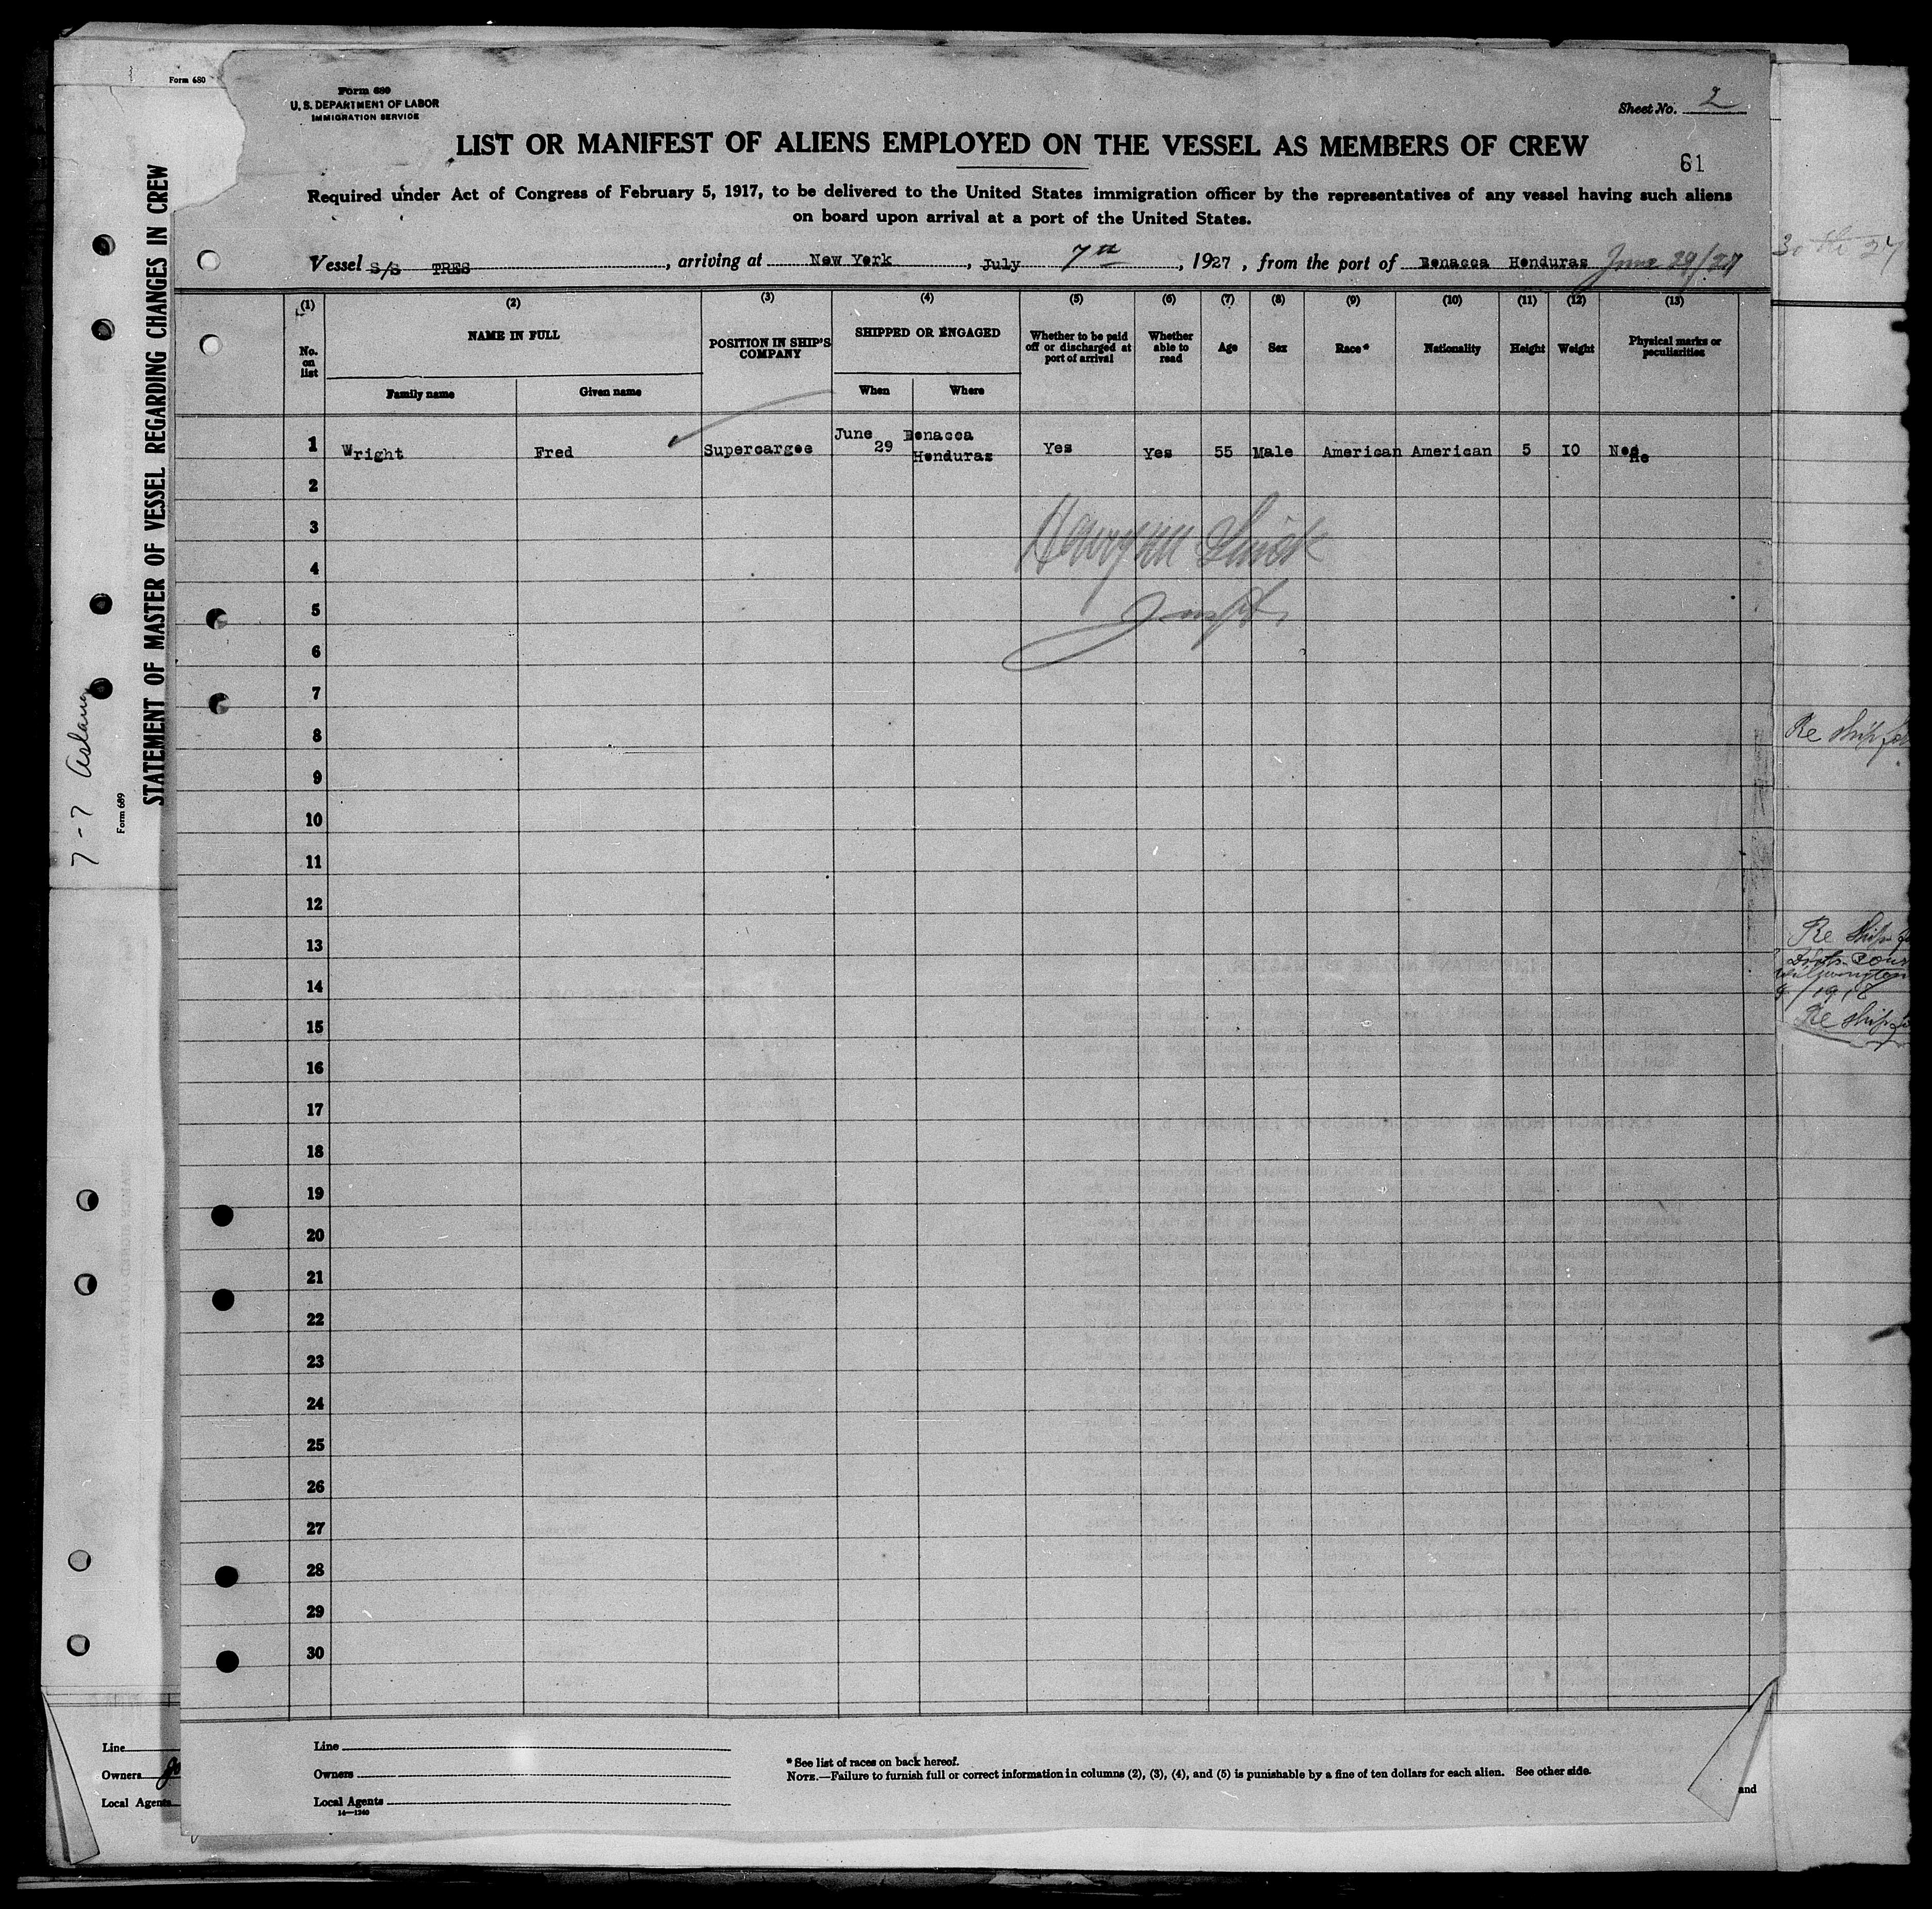 Form 680
Form 680
U. S. DEPARTMENT OF LABOR
IMMIGRATION SERVICE
Sheet No. 2
LIST OR MANIFEST OF ALIENS EMPLOYED ON THE VESSEL AS MEMBERS OF CREW
61
Required under Act of Congress of February 5, 1917, to be delivered to the United States immigration officer by the representatives of any vessel having such aliens
on board upon arrival at a port of the United States.
Vessel S/S TRES, arriving at New York, July 7th, 1927, from the port of Bonacca Honduras June 29/27
(1) (2) (3) (4) (5) (6) (7) (8) (9) (10) (11) (12) (13)
No. on list
NAME IN FULL
Family name
Given name
POSITION IN SHIP'S COMPANY
SHIPPED OR ENGAGED
When
Where
Whether to be paid off or discharged at port of arrival
Whether able to read
Age
Sex
Race*
Nationality
Height
Weight
Physical marks or peculiarities
1 Wright Fred Supercargoe June 29 Bonacca Honduras Yes Yes 55 Male American American 5 10
2
3
4
5
6
7
8
9
10
11
12
13
14
15
16
17
18
19
20
21
22
23
24
25
26
27
28
29
30
Line
Owners
Local Agents
14—1240
* See list of races on back hereof.
NOTE.—Failure to furnish full or correct information in columns (2), (3), (4), and (5) is punishable by a fine of ten dollars for each alien. See other side.
STATEMENT OF MASTER OF VESSEL REGARDING CHANGES IN CREW
Form 689
7-7
Line
Owners
Local Agents
and
30th 27
Re ship
Re Ship
Re ship